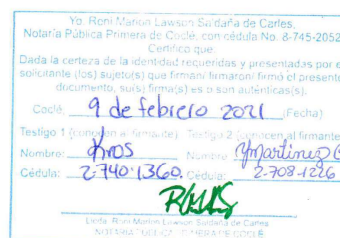 Yo, Roni Marion Lawson Saldaña de Carles,
Notaría Pública Primera de Coclé, con cédula No. 8-745-2052
Certifico que:
Dada la certeza de la identidad requeridas y presentadas por e
solicitante (los) sujeto(s) que firman/ firmaron/ firmó el presente
documento, su(s) firma(s) es o son auténticas(s).
Coclé, 9 de febrero 2021 (Fecha)
Testigo 1 (conocen al firmante) Testigo 2 (conocen al firmante
Nombre: Kros Nombre: Ymartinez
Cédula: 2-740-1360. Cédula: 2-708-1226
Licda. Roni Marion Lawson Saldaña de Carles
NOTARIA PÚBLICA PRIMERA DE COCLÉ